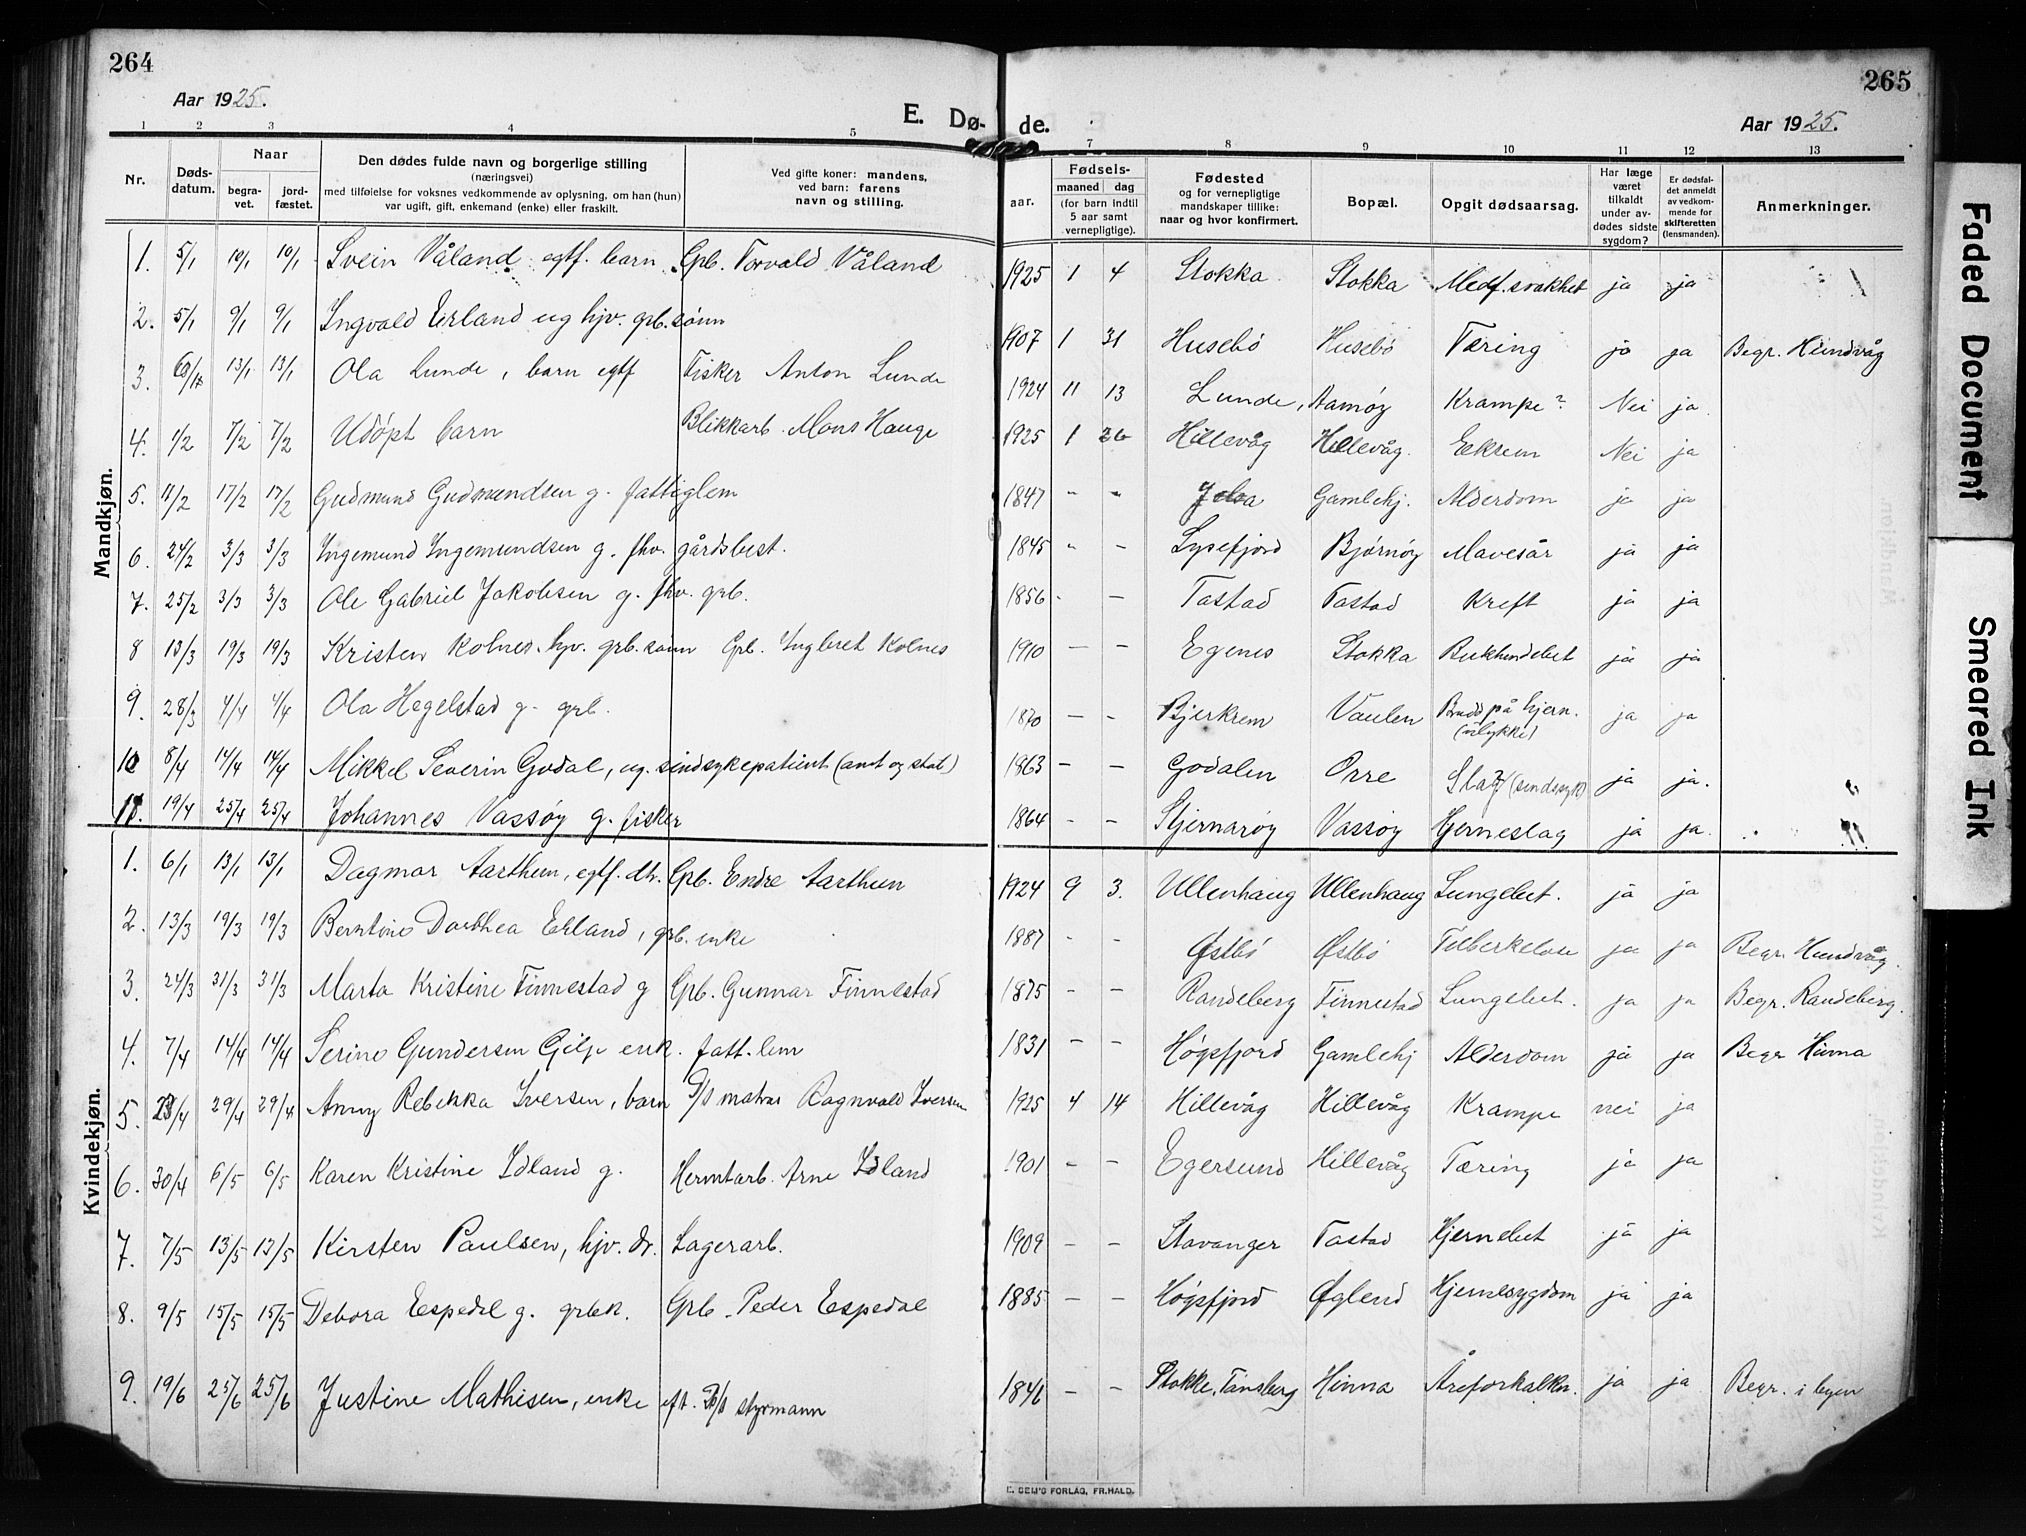 264
Aar 1925.
E. Dø-
1 2 3 4 5
Nr. Døds-datum. Naar begra-vet. jord-fæstet. Den dødes fulde navn og borgerlige stilling (næringsvei) med tilføielse for voksnes vedkommende av oplysning, om han (hun) var ugift, gift, enkemand (enke) eller fraskilt. Ved gifte koner: mandens, ved barn: farens navn og stilling.
Mandkjøn.
1. 5/1 10/1 10/1 Svein Våland egtf. barn Gpb. Torvald Våland
2. 5/1 9/1 9/1 Ingvald Erland ug hjv. gpb. sønn
3. 13/1 13/1 Ola Lunde, barn egtf Fisker Anton Lunde
4. 1/2 7/2 7/2 Udøpt barn Blikkarb. Mons Hauge
5. 11/2 17/2 17/2 Gudmund Gudmundsen g. fattiglem
6. 24/2 3/3 3/3 Ingemund Ingemundsen g. fhv. gårdsbest.
7. 25/2 3/3 3/3 Ole Gabriel Jakobsen g. fhv. gpb.
8 13/3 19/3 19/3 Kristen Kolnes hjv. gpb. sønn Gpb. Ingbret Kolnes
9. 28/3 4/4 4/4 Ola Hegelstad g. gpb.
10 8/4 14/4 14/4 Mikkel Severin Godal, ug. sindsykepatient (amt og stat)
11. 19/4 25/4 25/4 Johannes Vassøy g. fisker
Kvindekjøn.
1. 6/1 13/1 13/1 Dagmar Aarthun, egtf. dtr. Gpb. Endre Aarthun
2. 13/3 19/3 19/3 Berntine Dorthea Erland, gpb. enke
3. 24/3 31/3 31/3 Marta Kristine Finnestad g Gpb. Gunnar Finnestad
4. 7/4 14/4 14/4 Serine Gundersen Gilje enk. fatt. lem
5. 23/4 29/4 29/4 Anny Rebekka Iversen, barn D/S matros Ragnvald Iversen
6. 30/4 6/5 6/5 Karen Kristine Idland g. Hermtarb. Arne Idland
7. 7/5 13/5 13/5 Kirsten Paulsen, hjv. dr. Lagerarb.
8. 9/5 15/5 15/5 Debora Espedal g. gpbk. Gpb. Peder Espedal
9. 19/6 25/6 25/6 Justine Mathisen, enke eft. D/S styrmann
265
de.
Aar 1925.
7 8 9 10 11 12 13
Fødsels- aar. maaned dag (for barn indtil 5 aar samt vernepligtige). Fødested og for vernepligtige mandskaper tillike: naar og hvor konfirmert. Bopæl. Opgit dødsaarsag. Har læge været tilkaldt under av-dødes sidste sygdom? Er dødsfal-det anmeldt av vedkom-mende for skifteretten (lensmanden). Anmerkninger.
1925 1 4 Stokka Stokka Medf. svakhet ja ja
1907 1 31 Husebö Husebö Tæring ja ja Begr. Hundvåg
1924 11 13 Lunde, Aamøy Krampe? Nei ja
1925 1 26 Hillevåg Hillevåg. Eksem Nei ja
1847 - - Jelsa Gamlehj. Alderdom ja ja
1845 - - Lysefjord Bjørnøy Mavesår ja ja
1856 - - Tastad Tastad Kreft ja ja
1910 - - Egenes Stokka Bukhindebet ja ja
1870 - - Bjerkrem Vaulen Brudd på hjern. (ulykke) ja ja
1863 - - Godalen Orre Slag (sindssyk) ja ja.
1864 - - Stjernarøy Vassøy Hjerneslag ja ja.
1924 9 3. Ullenhaug Ullenhaug Lungebet. ja ja
1887 - - Østbö Østbö Tuberkelose ja ja Begr. Hundvåg.
1875 - - Randeberg Finnestad Lungebet. ja ja Begr. Randeberg.
1831 - - Høgsfjord Gamlehj Alderdom ja ja Begr Hinna
1925 4 14 Hillevåg Hillevåg Krampe nei ja
1901 - - Egersund Hillevåg Tæring ja ja
1909 - - Stavanger Tastad Hjernebet ja ja
1885 - - Høgsfjord Øglend Hjernesygdom ja ja
1846 - - Stokke, Tønsberg Hinna Åreforkalkn. ja ja Begr. i byen
E. SEM'S FORLAG, FR.HALD.
Faded Document
Smeared Ink